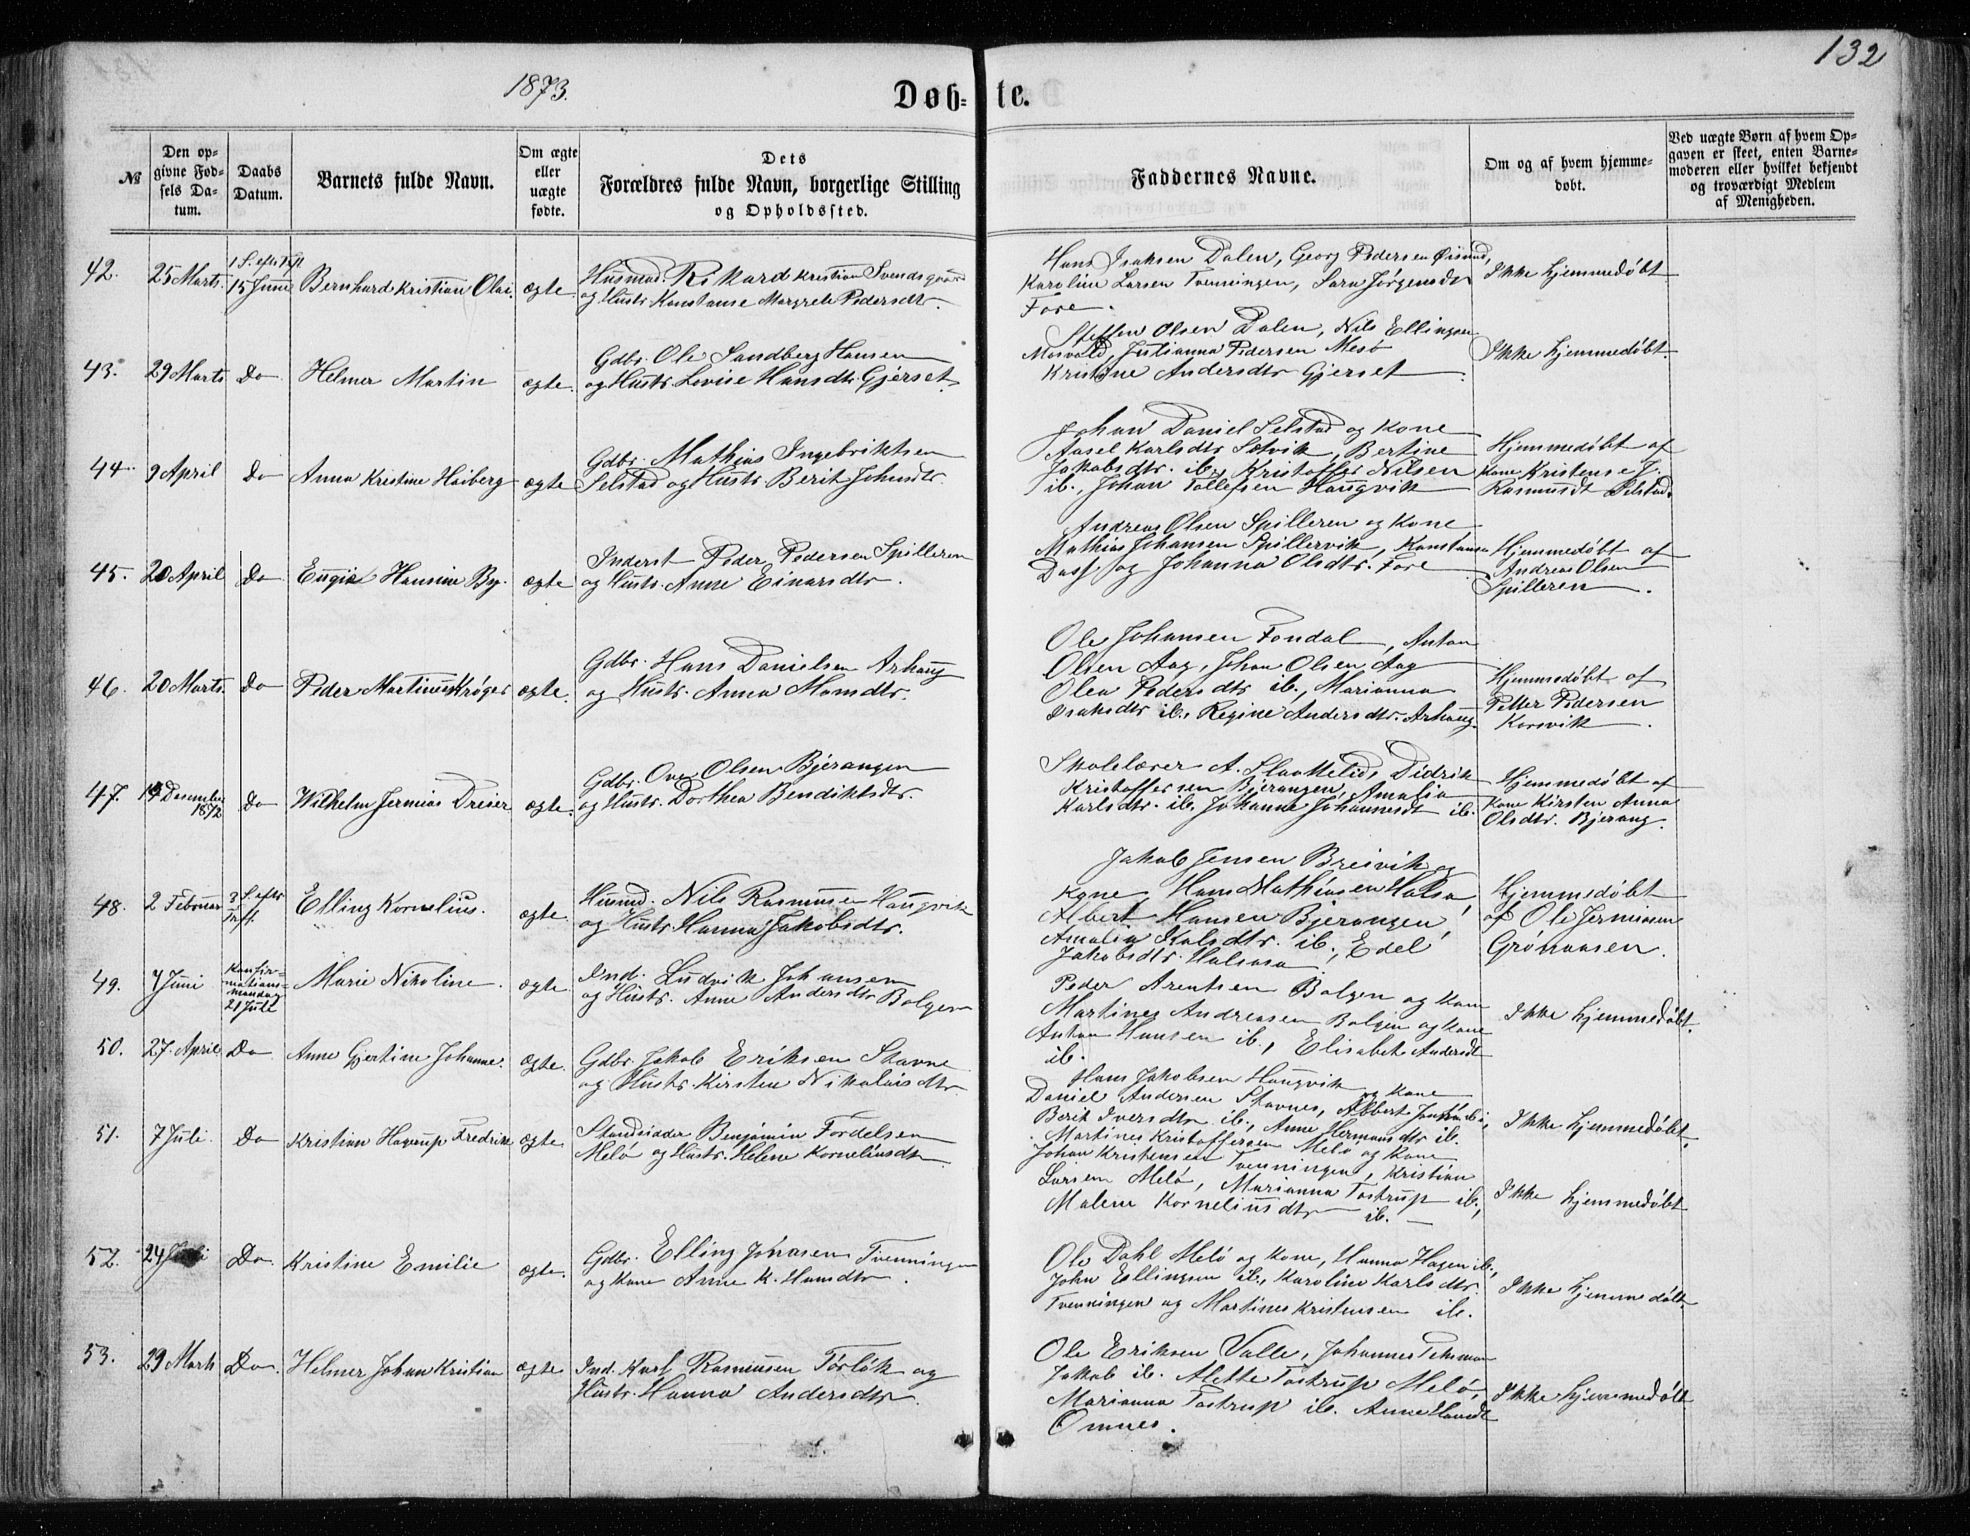 132
1873.
Døb- te.
№
Den op-
givne Fød-
sels Da-
tum.
Daabs
Datum.
Barnets fulde Navn.
Om ægte
eller
uægte
fødte.
Dets
Forældres fulde Navn, borgerlige Stilling
og Opholdssted.
Faddernes Navne.
Om og af hvem hjemme-
døbt.
Ved uægte Børn af hvem Op-
gaven er skeet, enten Barne-
moderen eller hvilket bekjendt
og troværdigt Medlem
af Menigheden.
42.
25 Marts
1 S. eft.
15 Juni
Bernhard Kristian Olai.
ægte
Husmd. Rikard Kristian Svendsgaard
og Hustr. Konstanse Margrete Pedersdtr.
Hans Isaksen Dalen, Georg Pedersen
Karoline Larsen Tvenningen, Sara Jørgensdtr
Fore.
Ikke hjemmedøbt
43.
29 Marts
Do
Helmer Martin
ægte.
Gdbr. Ole Sandberg Hansen
og Hustr. Lovise Hansdtr. Gjerset.
Steffen Olsen Dalen, Nils Ellingsen
Mosvold, Julianna Pedersen Mesø
Kristine Andersdtr Gjerset
Ikke hjemmedøbt
44.
9 April
Do
Anna Kristine Heiberg
ægte
Gdbr. Mathias Ingebriktsen
Selstad og Hustr. Berit Johnsdtr.
Johan Daniel Selstad og Kone
Aasel Karlsdtr Sætvik, Bertine
Jakobsdtr. ib., Kristoffer Nilsen
ib., Johan Tollefsen Haugvik
Hjemmedøbt af
Kone Kristense J.
Rasmusdt Selstad.
45.
20 April
Do
Eugie Hansine By.
ægte
Inderst Peder Pedersen Spilleren
og Hustr. Anne Einarsdtr.
Andreas Olsen Spilleren og Kone
Mathias Johansen Spillervik, Konstanse
Dass og Johanna Olsdtr. Fore
Hjemmedøbt af
Andreas Olsen
Spilleren.
46.
20 Marts.
Do
Peder Martinus Krøger
ægte.
Gdbr. Hans Danielsen Arhaug
og Hustr. Anna Monsdtr.
Ole Johansen Fondal, Anton
Olsen Aag, Johan Olsen Aag
Olea Pedersdtr ib., Marianna
Isaksdtr ib., Regine Andersdtr. Arhaug.
Hjemmedøbt af
Petter Pedersen
Korsvik.
47.
14 Desember
1872
Do
Wilhelm Jermias Dreier
ægte.
Gdbr. Ove Olsen Bjerangen
og Hustr. Dorthea Bendiktsdtr.
Skolelærer A. Slaattelid, Didrik
Kristoffersen Bjerangen, Amalia
Karlsdtr. ib., Johanne Johannesdt ib.
Hjemmedøbt af
Kone Kirsten Anna
Olsdtr. Bjerang.
48.
2 Februar
3 S. eft.
Elling Kornelius.
ægte.
Husmd. Nils Rasmusen Haugvik
og Hustr. Hanna Jakobsdtr.
Jakob Jensen Breivik og
Kone, Hans Mathiasen Halsa,
Albert Hansen Bjerangen,
Amalia Kalsdtr. ib., Edel
Jakobsdtr. Halsaa
Hjemmedøbt
af Ole Jermiasen
Grønaasen.
49.
7 Juni
Konfir-
mations-
mandag
21 Juli
Marie Nikoline.
ægte.
Ind. Ludvik Johansen
og Hustr. Anne Andersdtr Bolgen
Peder Arentsen Bolgen og Kone
Martines Andreasen Bolgen og Kone
Anton Hansen ib., Elisabet Andersdt
ib.
Ikke hjemmedøbt.
50.
27. April
Do
Anne Gjertine Johanne.
ægte.
Gdbr. Jakob Eriksen Stavne
og Hustr. Kirsten Nikolaisdtr.
Hans Jakobsen Haugvik og Kone
Daniel Andersen Stavnes, Albert
Berit Iversdtr ib., Anne Hermansdtr ib.
Ikke hjemmedøbt.
51.
7 Juli.
Do
Kristian Hagerup Fredrik
ægte
Strandsidder Benjamin Fordelsen
Melø og Hustr. Helene Korneliusdtr
Martines Kristoffersen Melø og Kone
Johan Kristensen Tvenningen, Kristian
Larsen Melø, Marianna Tostrup ib.,
Malene Korneliusdtr ib.
Ikke hjemmedøbt
52.
24
Do.
Kristine Emilie
ægte.
Gdbr. Elling Jonasen Tvenningen
og Kone Anne K. Hansdtr.
Ole Dahl Melø og Kone, Hanna Hagen ib.,
John Ellingsen ib., Karoline Karlsdtr.
Tvenningen og Martines Kristensen ib.
Ikke hjemmedøbt
53.
29 Marts
Do.
Helmer Johan Kristian
ægte
Ind. Karl Rasmusen Torløk og
Hustr. Hanna Andersdtr.
Ole Eriksen Valle, Johannes
Jakob ib. Alette Tostrup Melø,
Marianna Tostrup ib. Anne Hansdt
Omnes.
Ikke hjemmedøbt